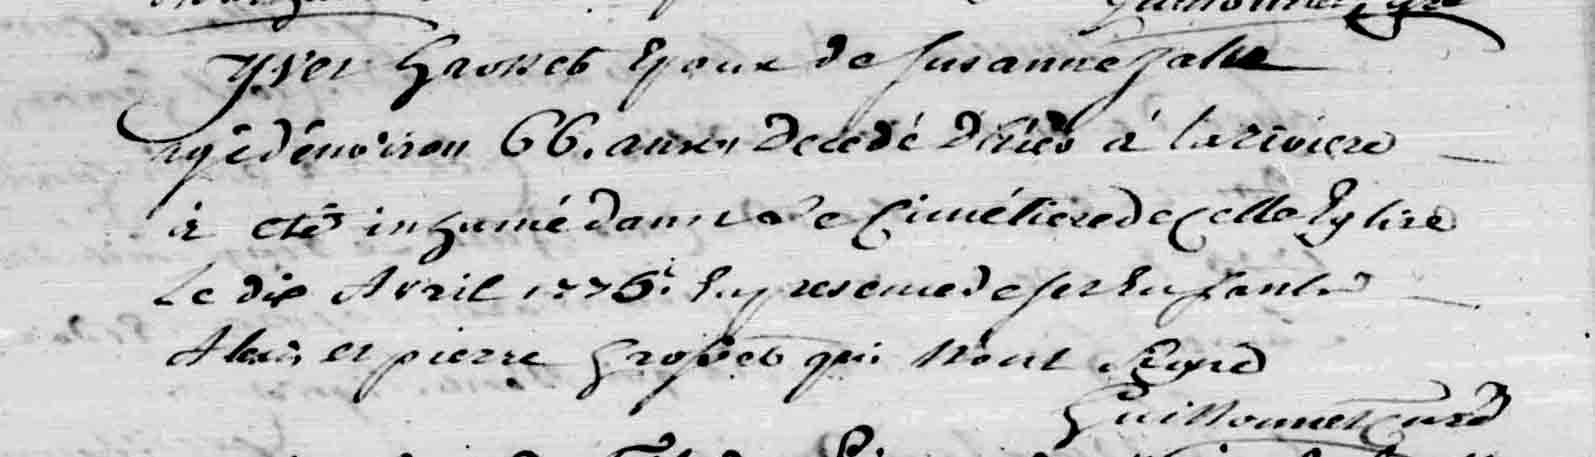 yves Grosset Epoux de Susanne
agé dénviron 66. anneés decedé d'hier à la riviere
à eté inhumé dans le Cimétiere de Cette Eglise
Le dix Avril 1776. En presence de ses Enfants
Alexis et pierre Grosset qui N'ont Signé
Guillonnet Curé